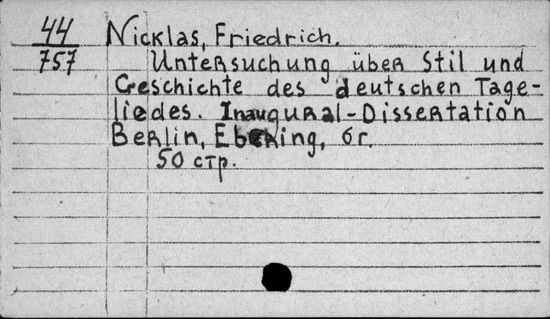 44 Nicklas, Friedrich.
757 Untersuchung über Stil und
Geschichte des deutschen Tage-
liedes. Inaugural-Dissertation
Berlin, Ebering, бг.
50 стр.